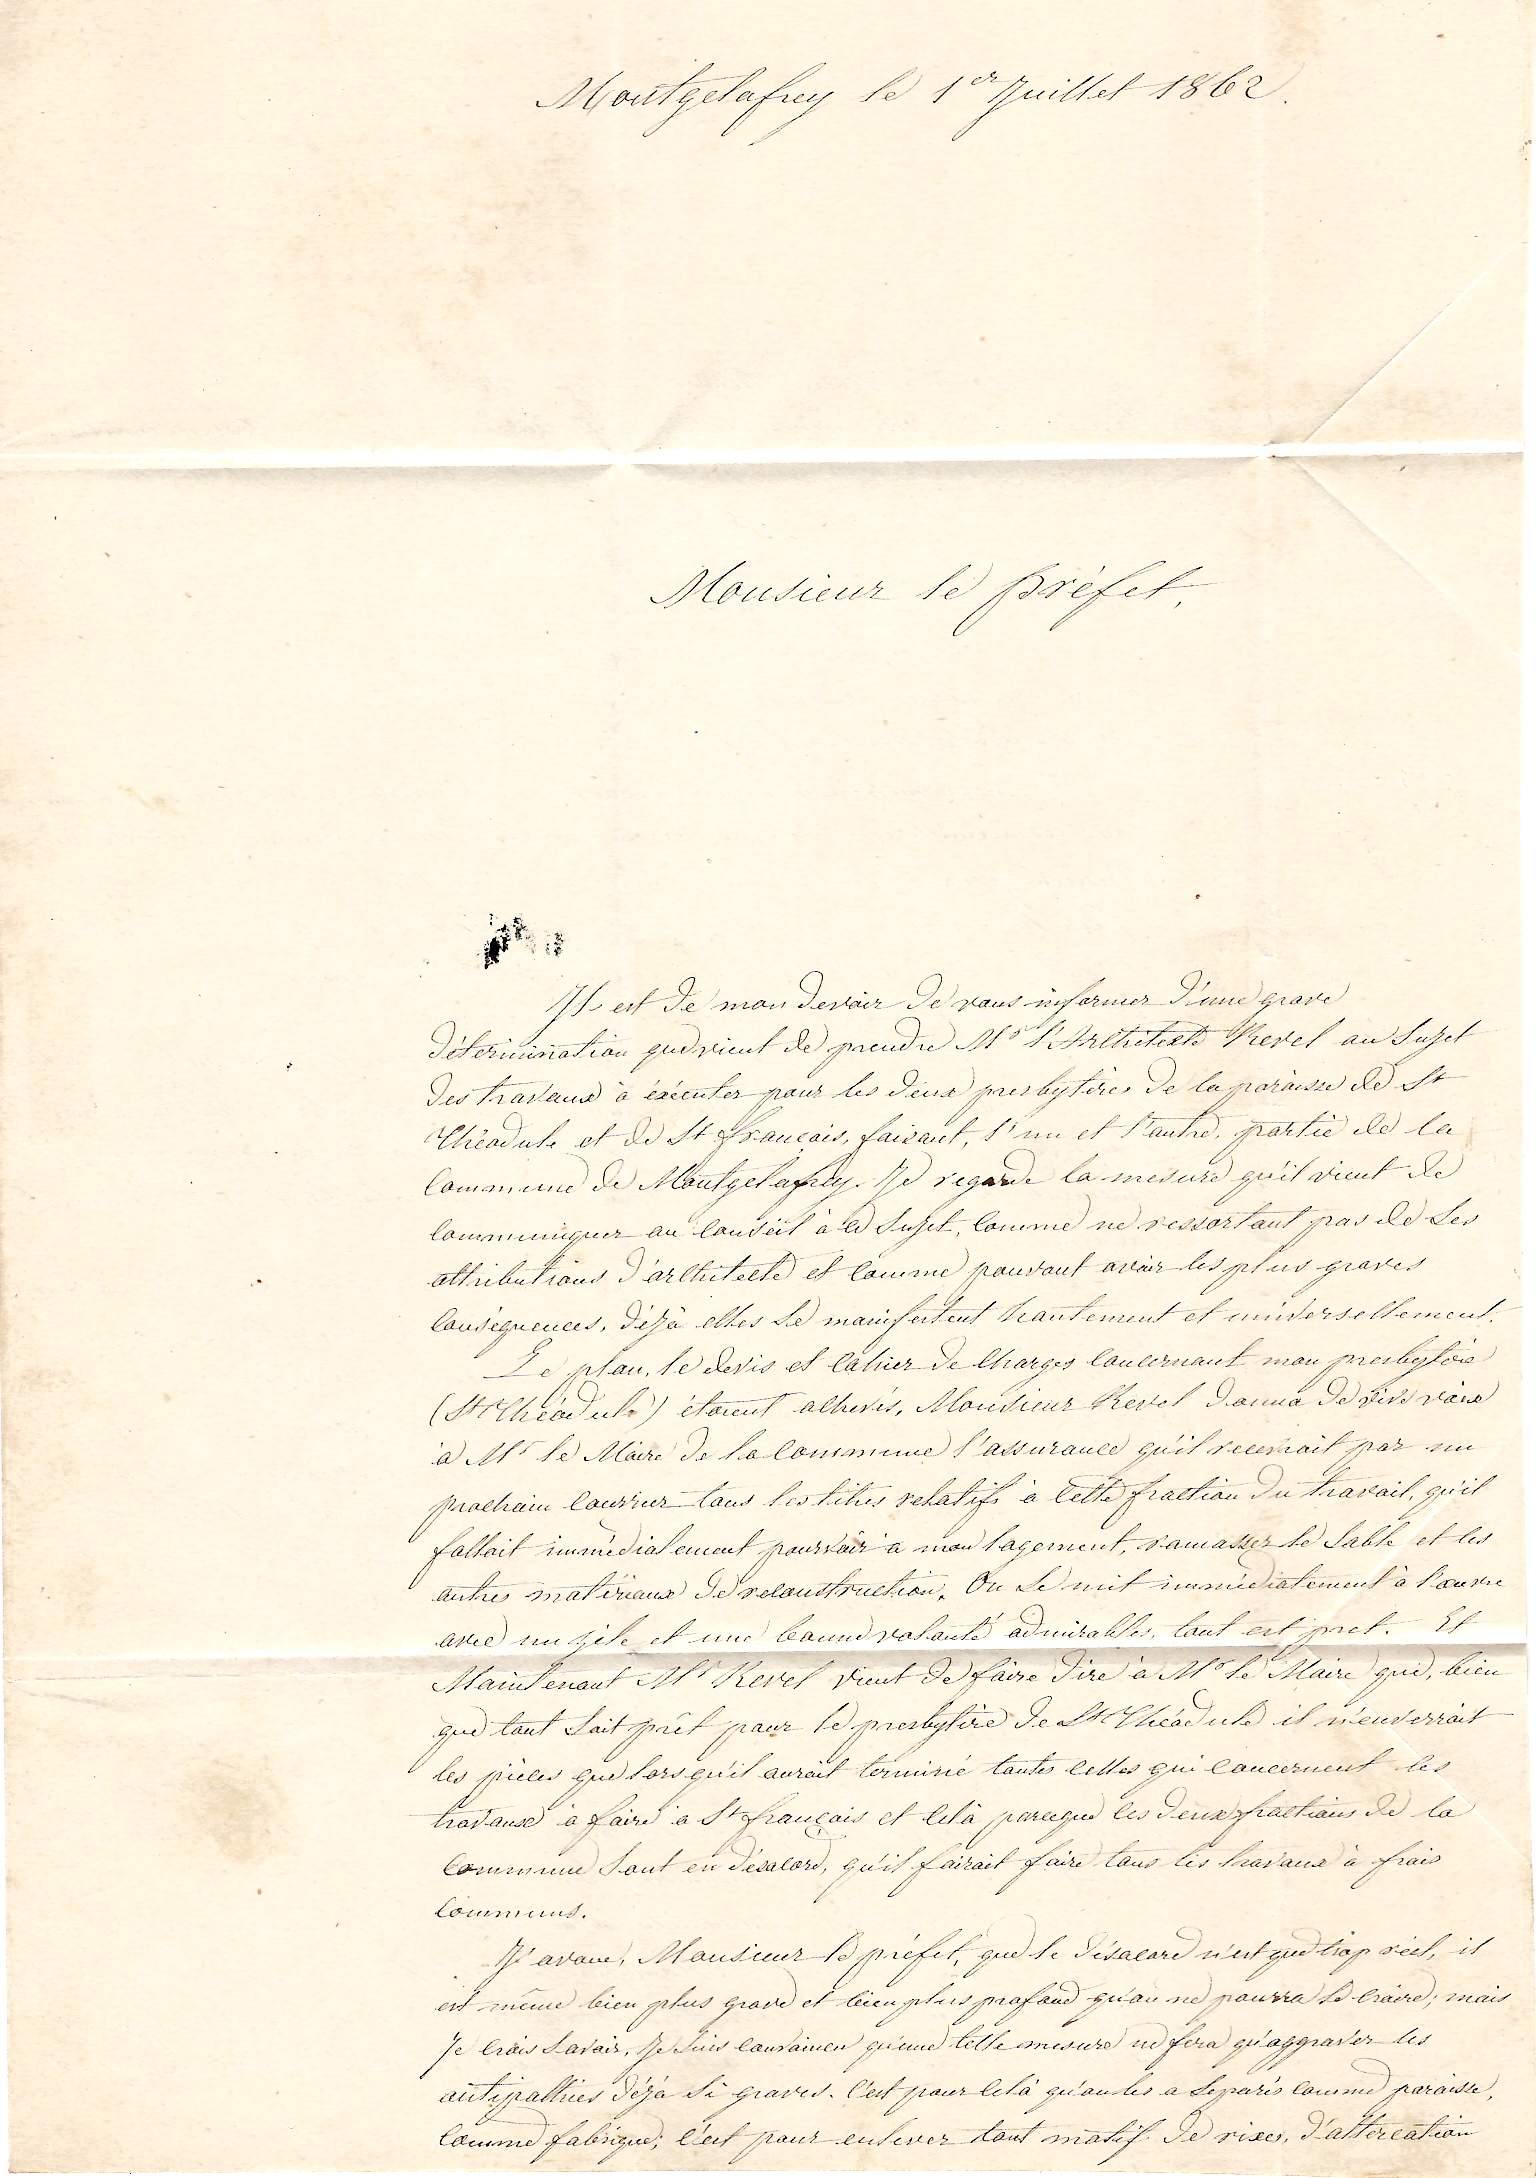 Montgelafrey le 1er Juillet 1862.
Monsieur le préfet,
Il est de mon devoir de vous informer d'une grave
détermination que vient de prendre Mr l'Architecte Revel au Sujet
des travaux à éxécuter pour les deux presbytères de la paroisse de St
Théodule et de St François, faisant, l'un et l'autre, partie de la
Commune de Montgelafrey. Je regarde la mesure qu'il vient de
communiquer au Conseil à ce Sujet, comme ne ressortant pas de Ses
attributions d'architecte et comme pouvant avoir les plus graves
Conséquences, déjà elles Se manifestent hautement et universellement.
Le plan, le devis et Cahier de Charges Concernant mon presbytère
(St Théodule) étaient achevés, Monsieur Revel donna de vive voix
à Mr le Maire de la Commune l'assurance qu'il recevrait par un
prochain Courrier tous les titres relatifs à Cette fraction du travail, qu'il
fallait immédiatement pourvoir a mon logement, ramasser le Sable et les
autres matériaux de reconstruction. On Se mit immédiatement à l'œuvre
avec un zèle et une bonne volonté admirables, tout est pret. Et
Maintenant Mr Revel vient de faire dire à Mr le Maire que, bien
que tout Soit prêt pour le presbytère de St Théodule il n'enverrait
les pièces que lorsqu'il aurait terminé toutes Celles qui Concernent les
travaux à faire à St François et Celà parceque les deux fractions de la
Commune Sont en désacord, qu'il fairait faire tous les travaux à frais
Communs.
J'avoue, Monsieur le préfet, que le désacord n'est que trop réel, il
est même bien plus grave et bien plus profond qu'on ne pourra le Croire; mais
Je Crois Savoir, Je Suis Convaincu qu'une telle mesure ne fera qu'aggraver les
antipathies déjà Si graves. C'est pour Celà qu'on les a Séparés Comme paroisse,
Comme fabrique; C'est pour enlever tout motif de rixes, d'altercation